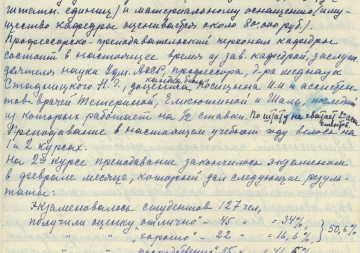 штатн. единиц) и материальному оснащению (иму-
щество кафедрой оценивается около 80.000 руб).
Профессорско-преподавательский персонал кафедрой
состоит в настоящее время из зав. кафедрой, заслуж.
деятеля науки Удм. АССР, профессора, д-ра меднаук
Стадницкого Н.Г., доцента, Косицина И.И и ассистен-
тов врачей Тетериной, Елисютиной и
из которых работает на ½ ставки. По штату не хватает
Преподавание в настоящем учебном году велось на
1 и 2 курсах.
На 2м курсе преподавание закончилось экзаменом
в феврале месяце, который дал следующие резуль-
таты:
Экзаменовалось студентов 127 чел,
получили оценку "отлично" – 45 " = 34%
" " "хорошо" – 22 " = 16,6% } 50,6%
" " 55 " =